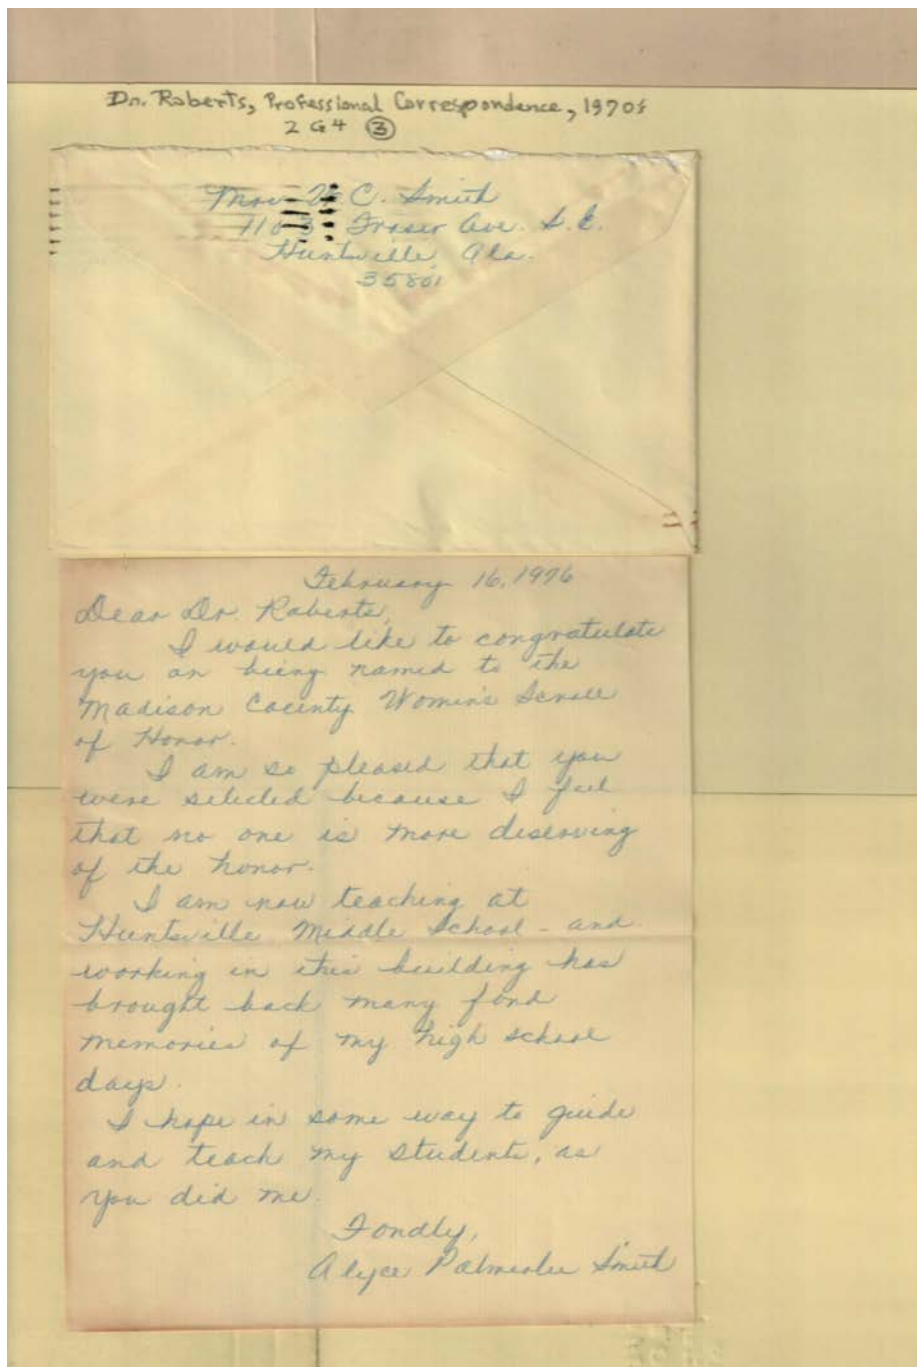 Dr. Roberts, Professional Correspondence, 1970s
2 G4 ③
Mrs. C. Smith
Fraser Ave. S.E.
Huntsville, Ala.
35801
February 16, 1976
Dear Dr. Roberts,
I would like to congratulate
you on being named to the
Madison County Women's Scroll
of Honor.
I am so pleased that you
were selected because I feel
that no one is more deserving
of the honor.
I am now teaching at
Huntsville Middle School - and
working in this building has
brought back many fond
memories of my high school
days.
I hope in some way to guide
and teach my students, as
you did me.
Fondly,
Alyce Palmerlee Smith